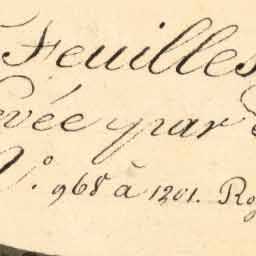 Feuilles
vée par
N.º 968 à 1201. Ro